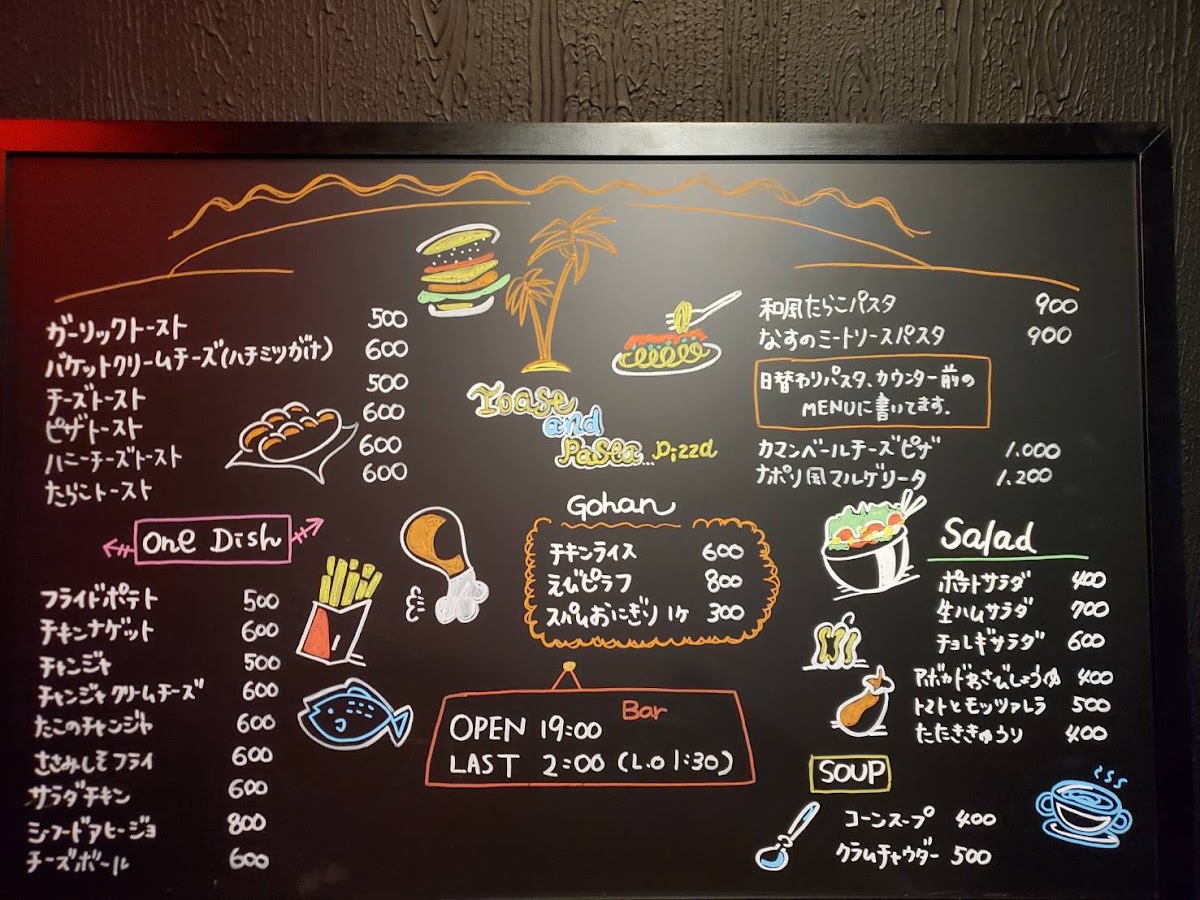 ガーリックトースト 500
バケットクリームチーズ(ハチミツがけ) 600
チーズトースト 500
ピザトースト 600
ハニーチーズトースト 600
たらこトースト 600
Toase
and
Pasta... Pizza
和風たらこパスタ 900
なすのミートソースパスタ 900
日替わりパスタ、カウンター前の
MENUに書いてます.
カマンベールチーズピザ 1.000
ナポリ風マルゲリータ 1.200
One Dish
フライドポテト 500
チキンナゲット 600
チャンジャ 500
チャンジャクリームチーズ 600
たこのチャンジャ 600
ささみしそフライ 600
サラダチキン 600
シーフードアヒージョ 800
チーズボール 600
Gohan
チキンライス 600
えびピラフ 800
スパムおにぎり 1ケ 300
Bar
OPEN 19:00
LAST 2:00 (L.O 1:30)
Salad
ポテトサラダ 400
生ハムサラダ 700
チョレギサラダ 600
アボカドわさびしょうゆ 400
トマトとモッツァレラ 500
たたききゅうり 400
SOUP
コーンスープ 400
クラムチャウダー 500